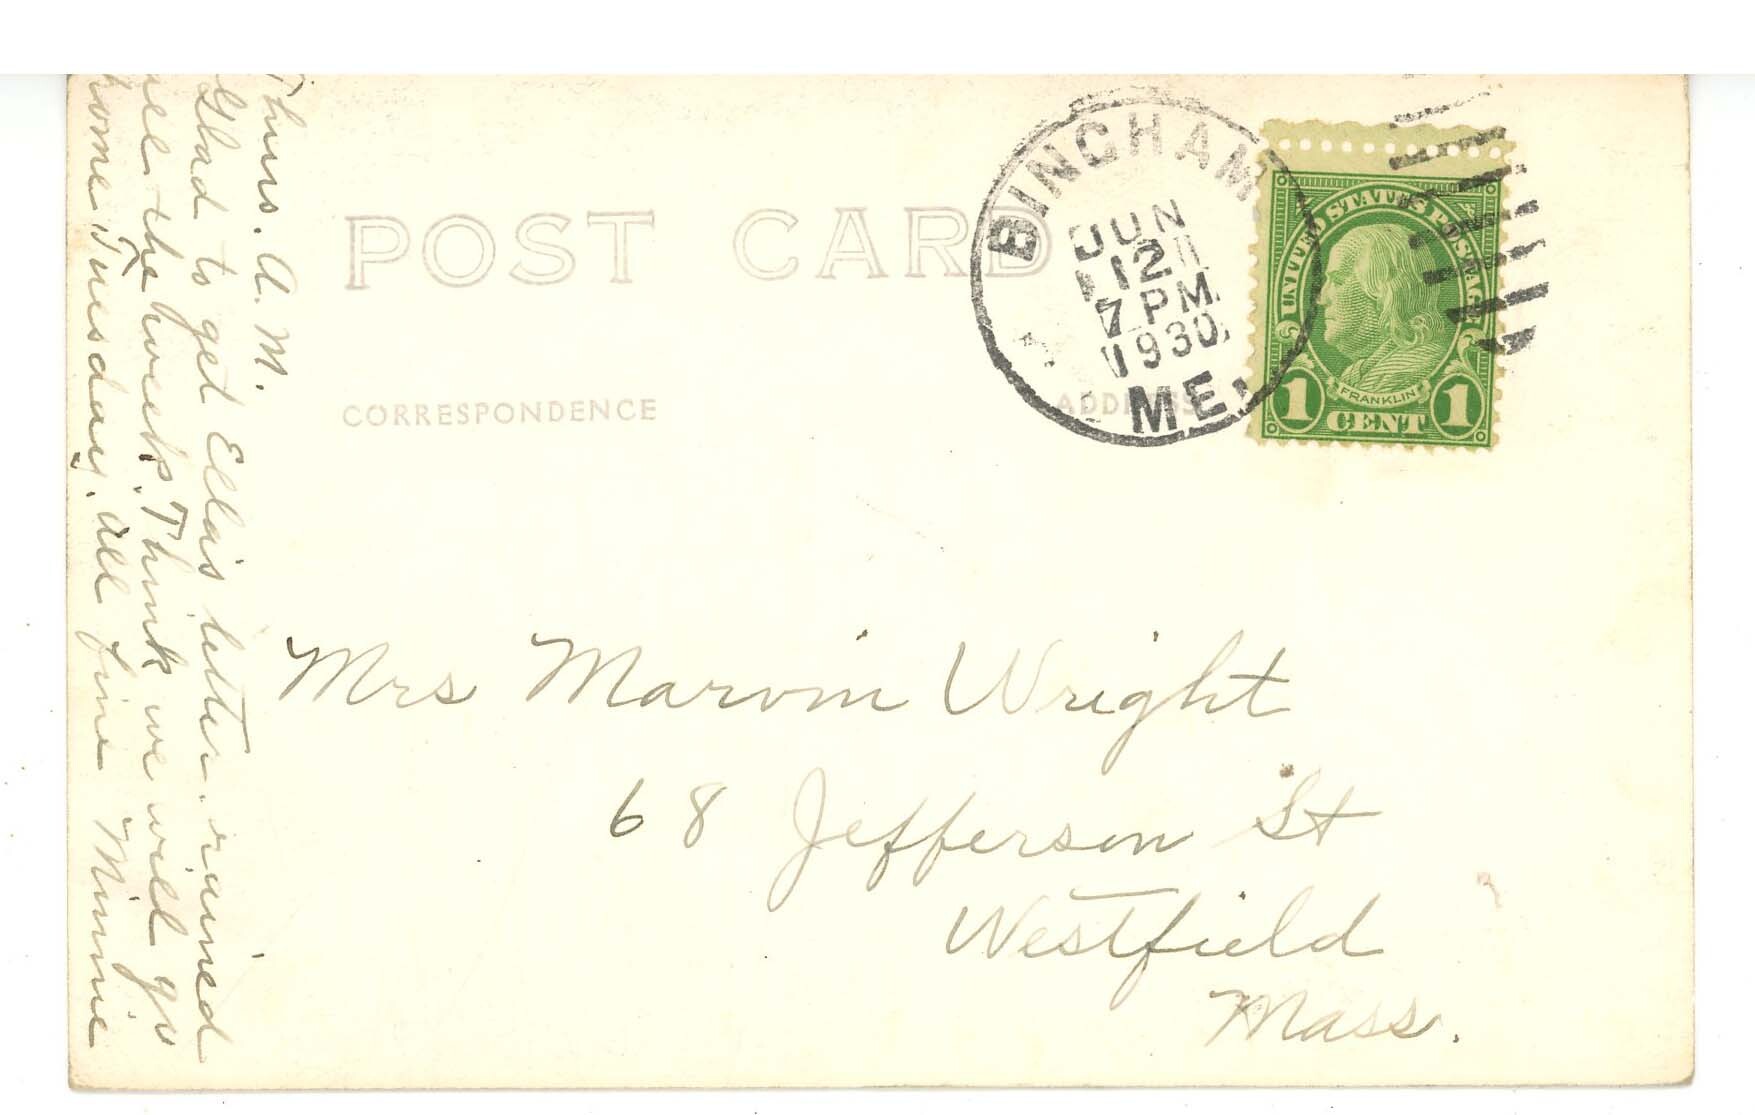 Thurs. A. M.
Glad to get Ella's letter. rained
all the week. Think we will go
home Tuesday, all fine Minnie
POST CARD
CORRESPONDENCE
ADDRESS
BINGHAM
JUN
12
7 PM
1930
ME.
UNITED STATES POSTAGE
FRANKLIN
1 CENT 1
Mrs Marvin Wright
68 Jefferson St
Westfield
Mass.